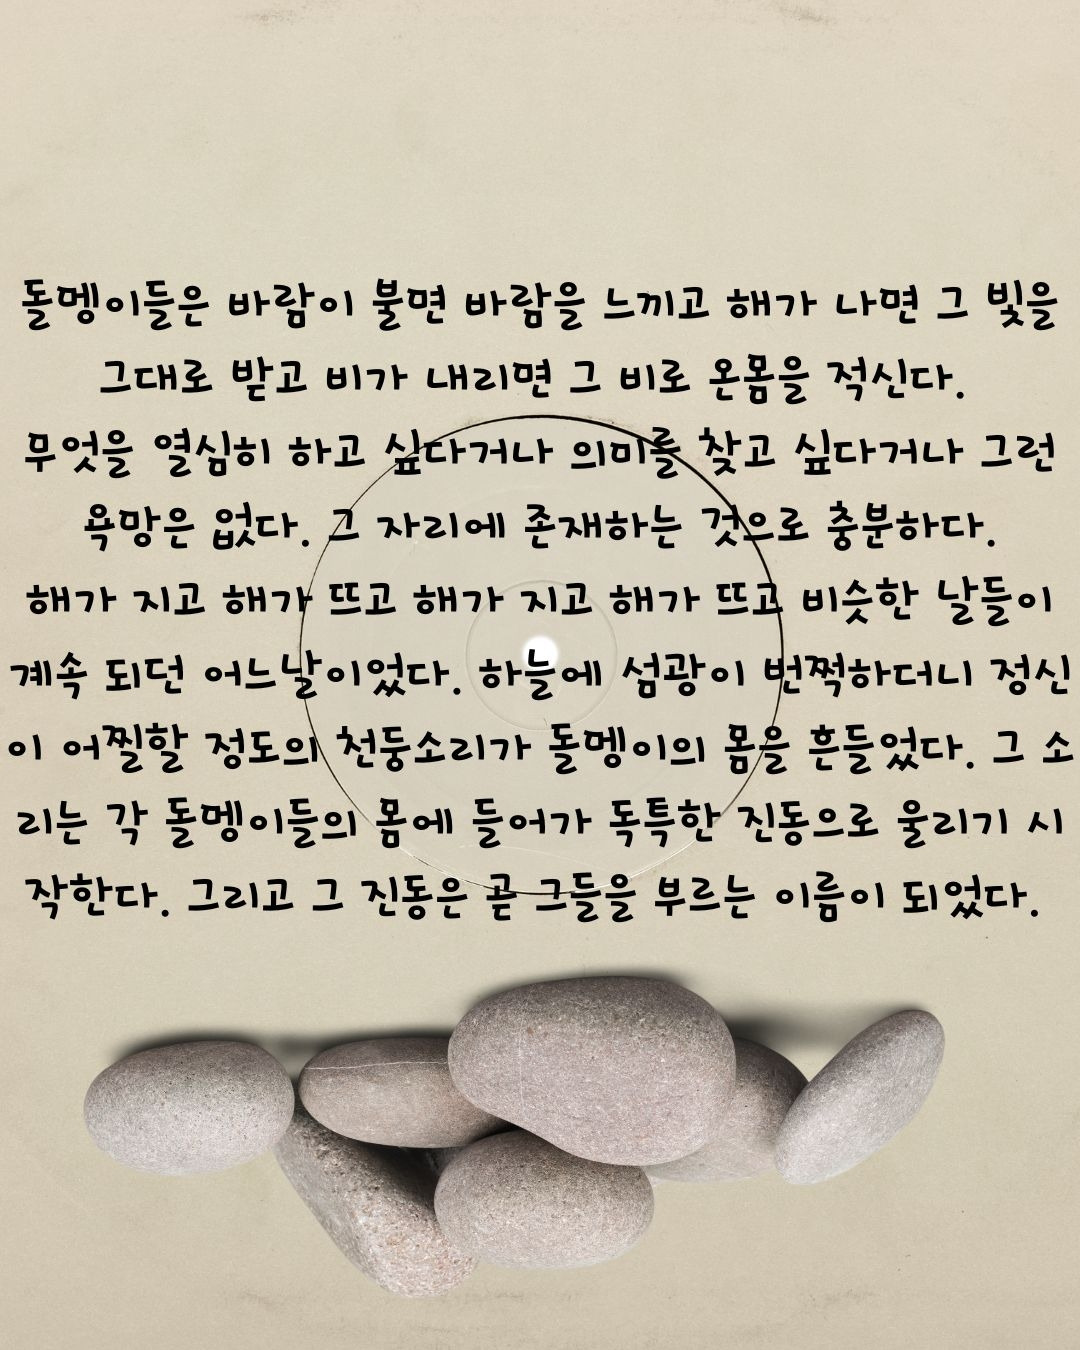 돌멩이들은 바람이 불면 바람을 느끼고 해가 나면 그 빛을
그대로 받고 비가 내리면 그 비로 온몸을 적신다.
무엇을 열심히 하고 싶다거나 의미를 찾고 싶다거나 그런
욕망은 없다. 그 자리에 존재하는 것으로 충분하다.
해가 지고 해가 뜨고 해가 지고 해가 뜨고 비슷한 날들이
계속 되던 어느날이었다. 하늘에 섬광이 번쩍하더니 정신
이 어찔할 정도의 천둥소리가 돌멩이의 몸을 흔들었다. 그 소
리는 각 돌멩이들의 몸에 들어가 독특한 진동으로 울리기 시
작한다. 그리고 그 진동은 곧 그들을 부르는 이름이 되었다.